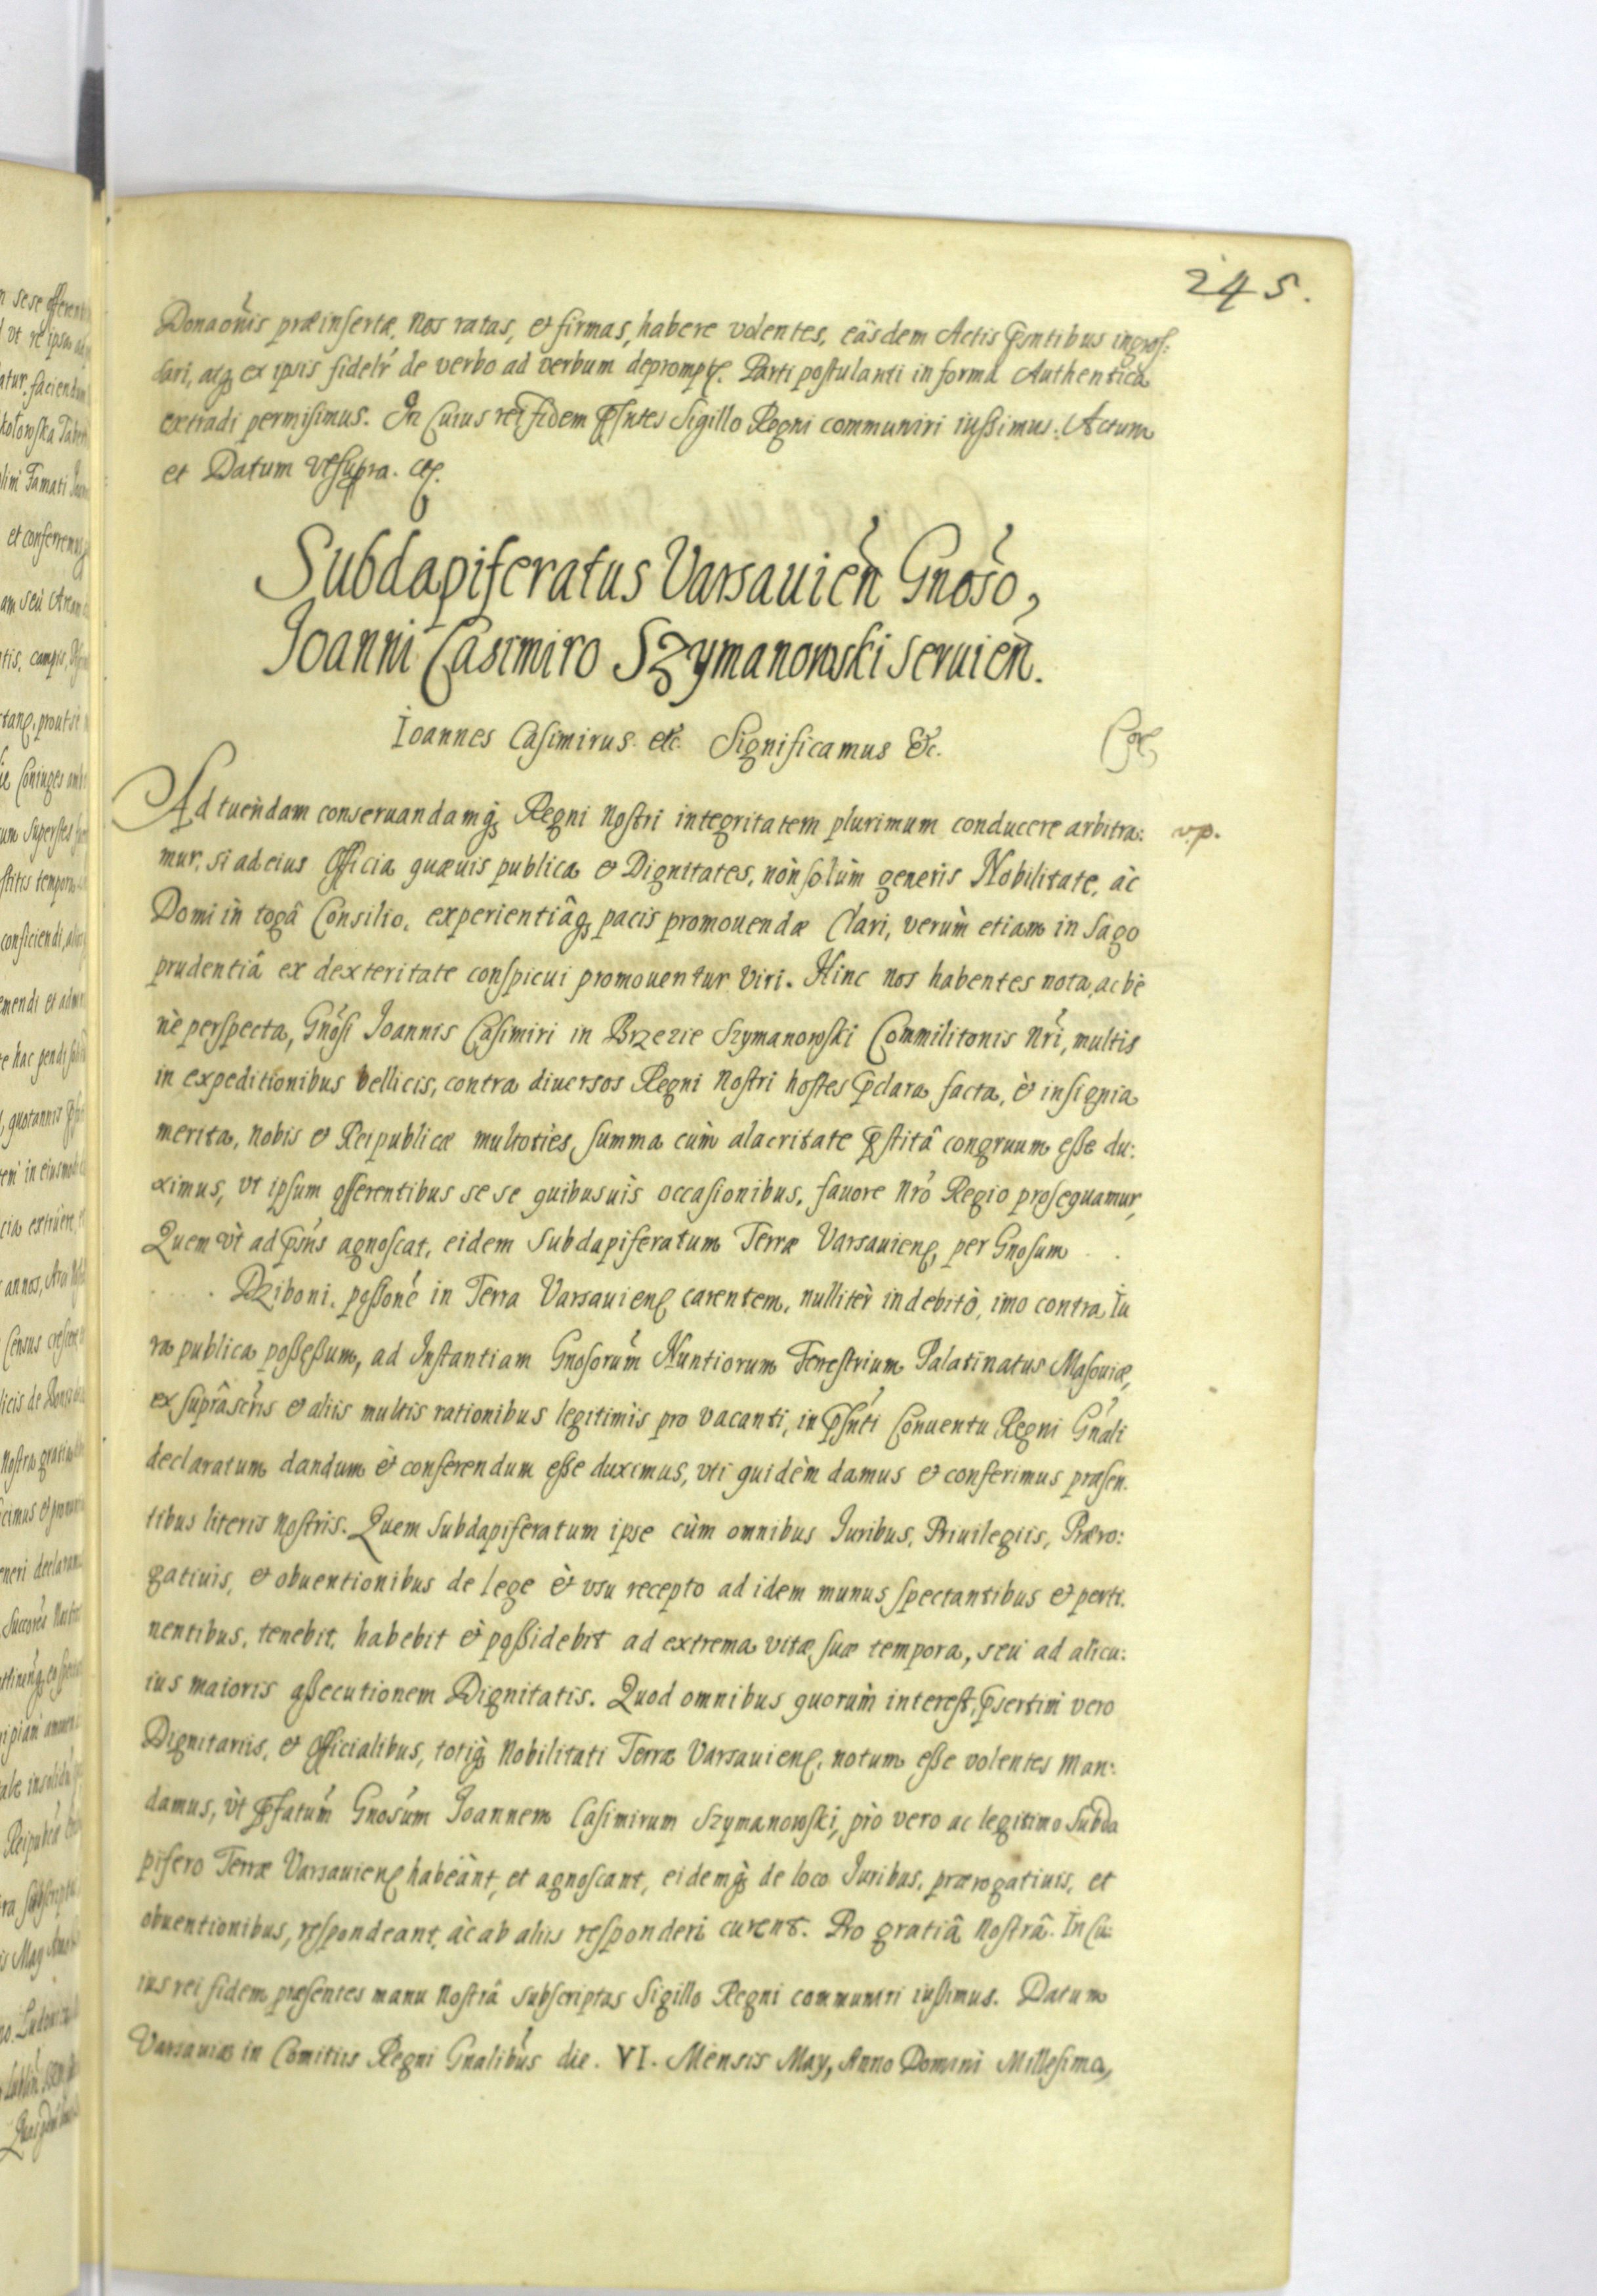 245.
Donaōnis præinsertæ. Nos ratas, et firmas, habere volentes, eäsdem Actis p̄sntibus ingros:
sari, atq; ex ipsis fidelr̄ de verbo ad verbum depromptę. Parti postulanti in forma Authentica
extradi permisimus. In Cuius rei fidem p̄sntes Sigillo Regni communiri iussimus. Actum
et Datum vt supra. etc.
Subdapiferatus Varsauień Gnośo,
Ioanni Casimiro Szymanowski seruień.
Ioannes Casimirus. etc. Significamus &c.
Cor
Ad tuèndam conseruandamq; Regni Nostri integritatem plurimum conducere arbitra:
v.p.
mur, si ad eius Officia quæuis publica et Dignitates, nòn solùm generis Nobilitate, àc
Domi in togâ Consilio, experientiâq; pacis promouendæ Clari, verùm etiam in sago
prudentiâ ex dexteritate conspicui promouentur Viri. Hinc nos habentes nota, ac bè
nè perspecta, Gnośi Ioannis Casimiri in Brzezie Szymanowski Commilitonis Nri, multis
in expeditionibus bellicis, contra diuersos Regni Nostri hostes p̄clara facta, èt insignia
merita, nobis et Reipublicæ multotiès, summa cùm alacritate p̄stitâ congruum esse du:
ximus, vt ipsum offerentibus se se quibusuìs occasionibus, fauore Nro Regio prosequamur,
Quem vt ad p̄sns agnoscat, eidem Subdapiferatum Terræ Varsauienę, per Gnosum . .
. . . . Dziboni. possone in Terra Varsauienę carentem, nullitèr indebitò, imo contra Iu
ra publica possessum, ad Instantiam Gnosorum Nuntiorum Terrestrium Palatinatus Masouiæ,
ex suprâscris et aliis multis rationibus legitimis pro vacanti, in p̄snti Conuentu Regni Gnali
declaratum dandum èt conferendum esse duximus, vti quidèm damus et conferimus præsen.
tibus literis Nostris. Quem Subdapiferatum ipse cùm omnibus Iuribus, Priuilegiis, Præro:
gatiuis, et obuentionibus de lege èt vsu recepto ad idem munus spectantibus et perti.
nentibus, tenebit, habebit èt possidebit ad extrema vitæ suæ tempora, seu ad alicu:
ius maioris assecutionem Dignitatis. Quod omnibus quorum interest, p̄sertim vero
Dignitariis, et Officialibus, totiq; Nobilitati Terræ Varsauienę, notum esse volentes Man:
damus, ùt p̄fatum Gnosum Ioannem Casimirum Szymanowski, pro vero ac legitimo Subda
pifero Terræ Varsauienę habeant, et agnoscant, eidemq; de loco Iuribus, prærogatiuis, et
obuentionibus, respondeant, àc ab aliis responderi curent. Pro gratiâ Nostrâ. In Cu
ius rei fidem præsentes manu Nostrâ subscriptas Sigillo Regni communiri iussimus. Datum
Varsauiæ in Comitiis Regni Gnalibus die. VI. Mensis May, Anno Domini Millesimo,